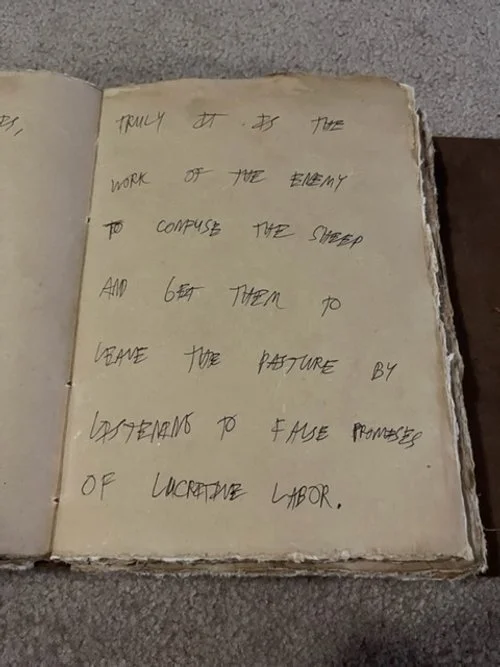 TRULY IT IS THE
WORK OF THE ENEMY
TO CONFUSE THE SHEEP
AND GET THEM TO
LEAVE THE PASTURE BY
LISTENING TO FALSE PROMISES
OF LUCRATIVE LABOR.